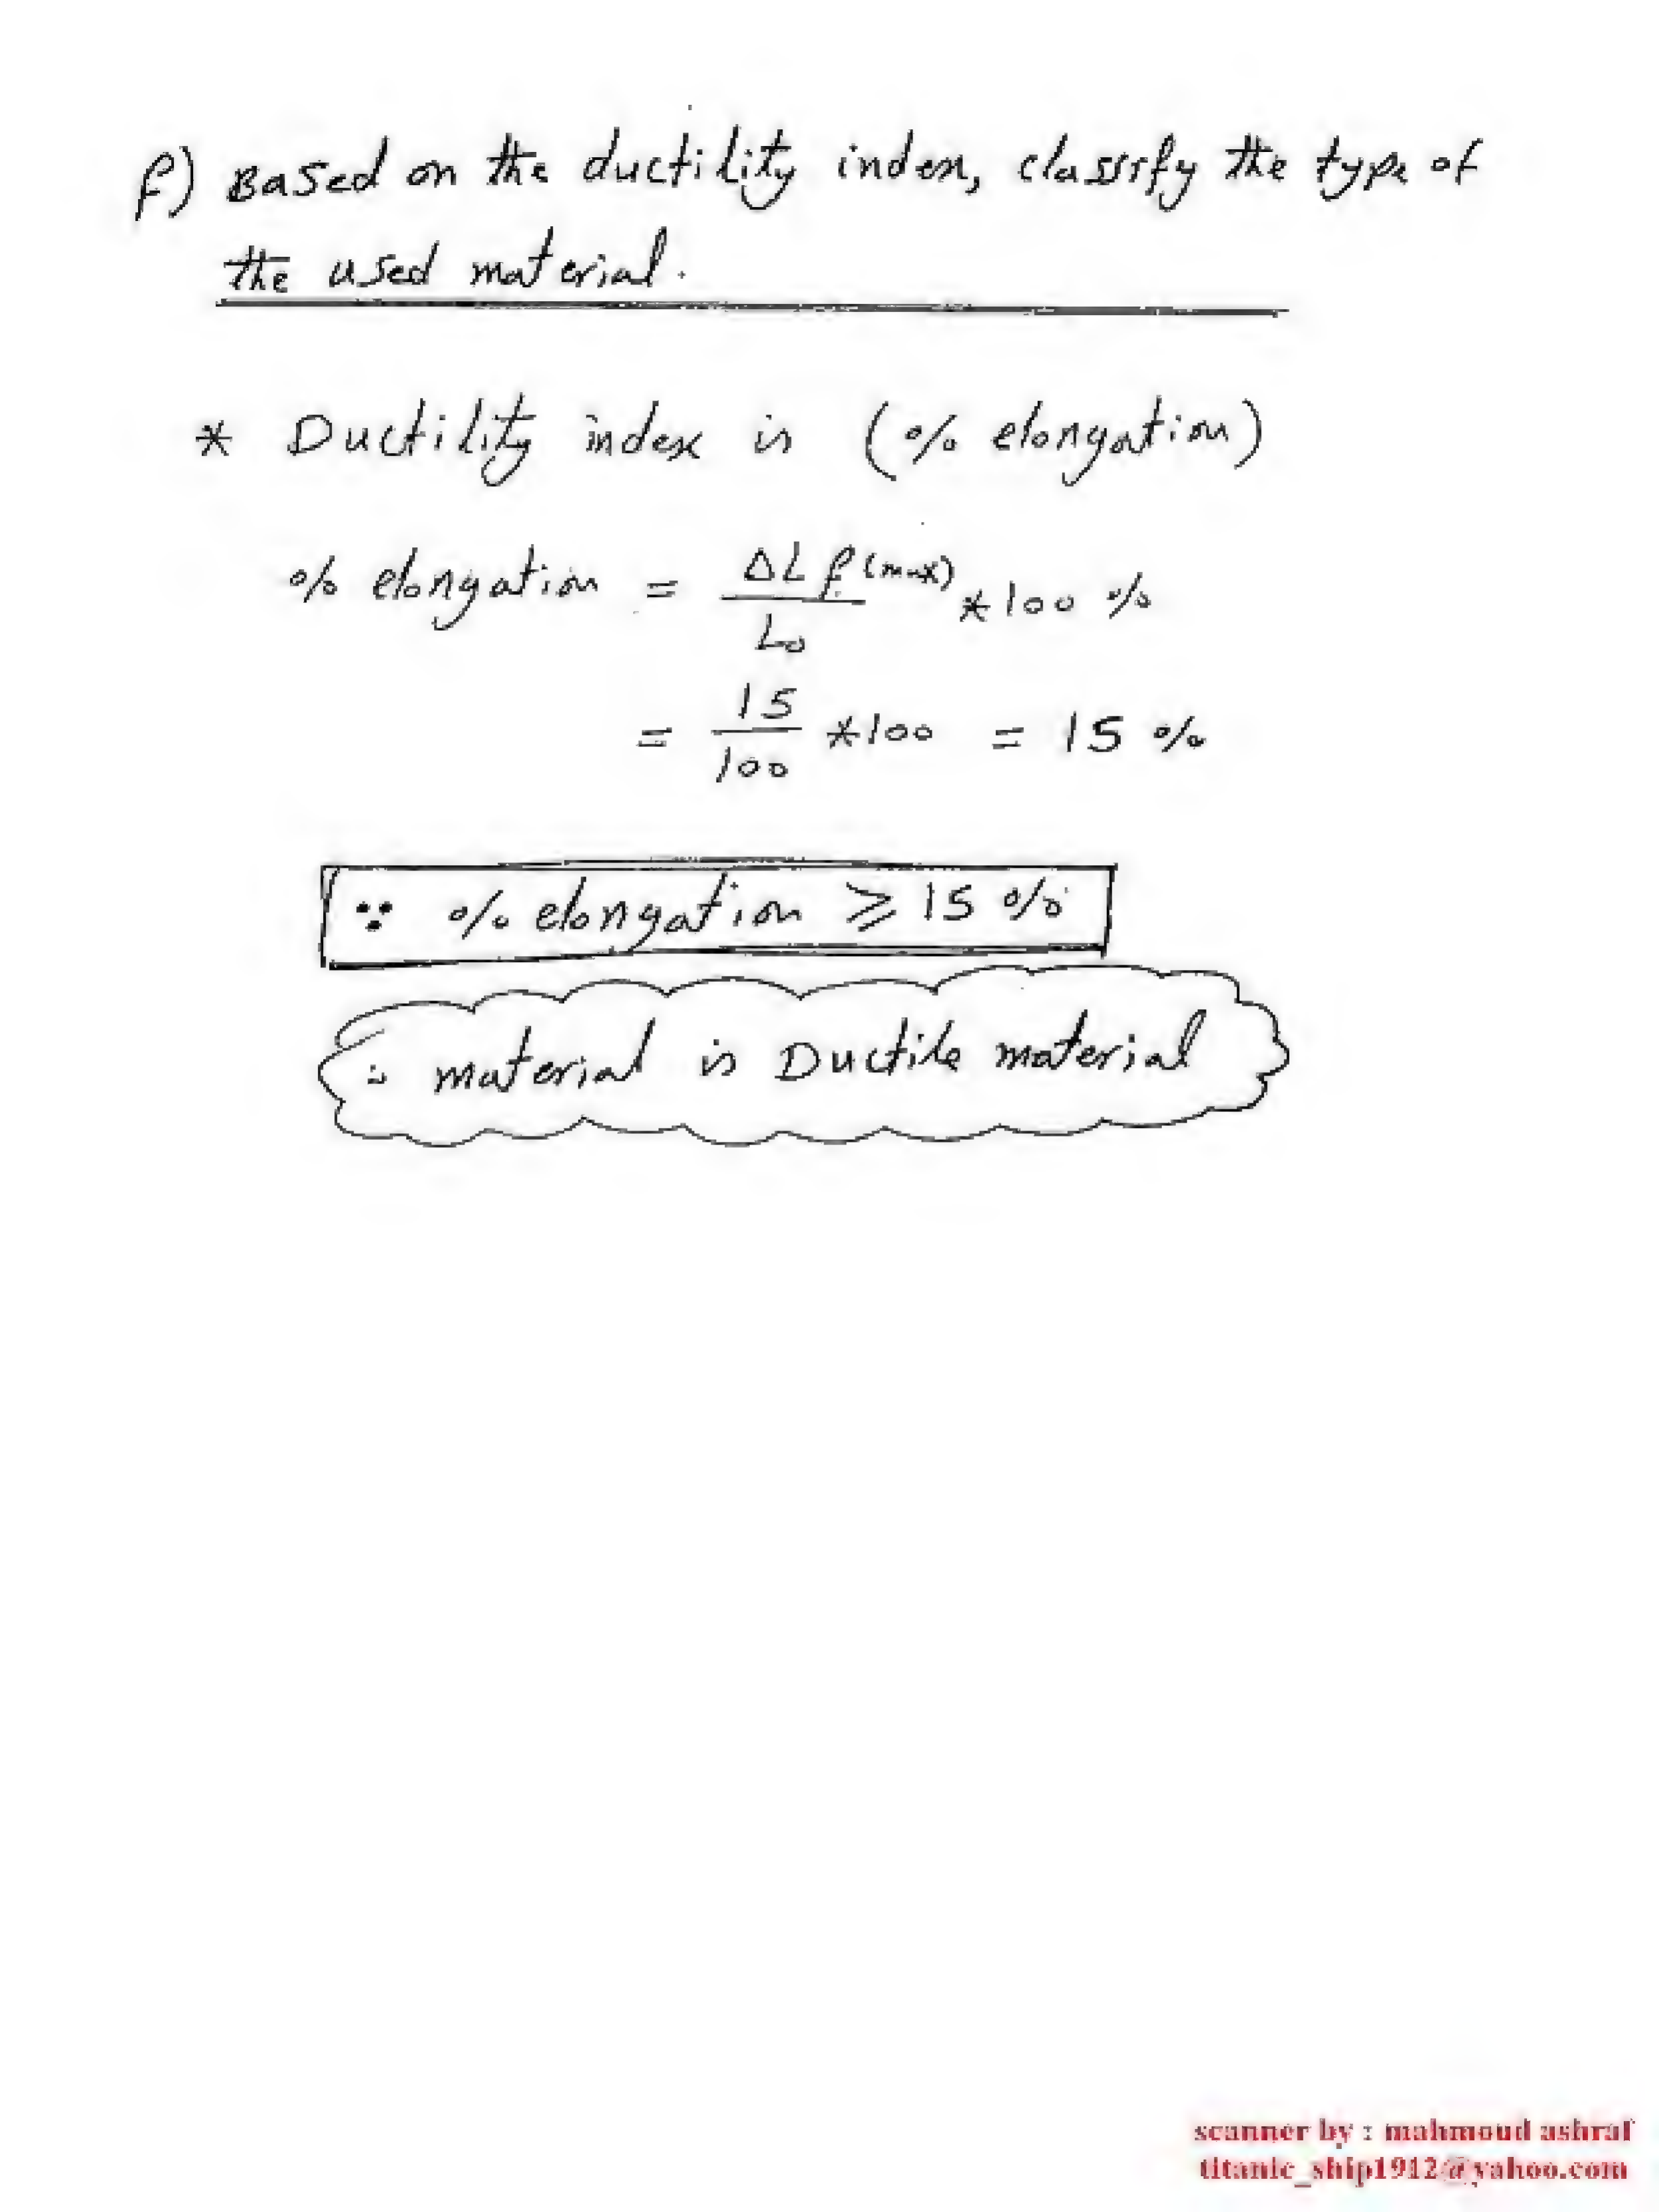 f) Based on the ductility index, classify the type of
the used material.
* Ductility index is (% elongation)
% elongation = ΔL f(max) / L₀ * 100 %
= 15 / 100 * 100 = 15 %
∵ % elongation ⩾ 15 %
∴ material is Ductile material
scanner by : mahmoud ashraf
titanic_ship1912@yahoo.com